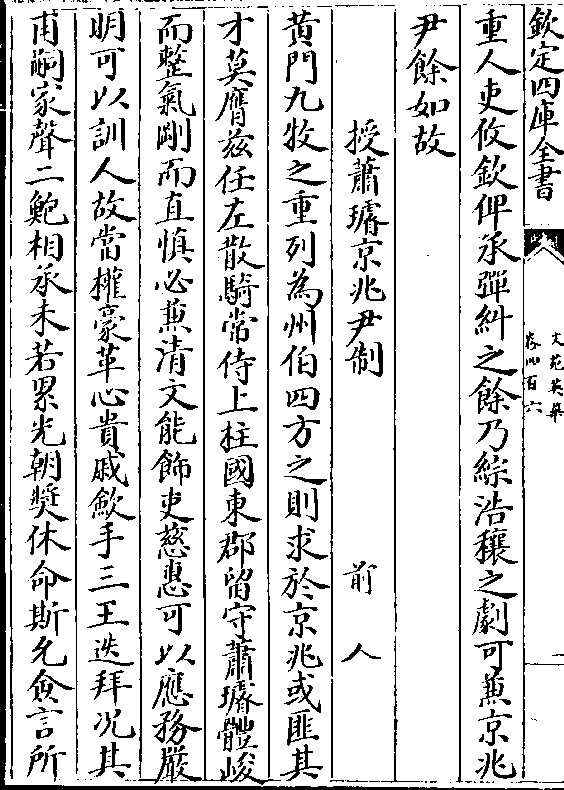 欽定四庫全書
文苑英華
卷四百六
重人吏攸欽俾承彈糾之餘乃綜浩穰之劇可兼京兆
尹餘如故
授蕭璿京兆尹制
前人
黄門九牧之重列為州伯四方之則求於京兆或匪其
才莫膺兹任左散騎常侍上柱國東郡留守蕭璿體峻
而整氣剛而直慎必兼清文能飾吏慈惠可以應務嚴
明可以訓人故當權豪革心貴戚歛手三王迭拜况其
甫嗣家聲二鮑相承未若累光朝奬休命斯允僉言所